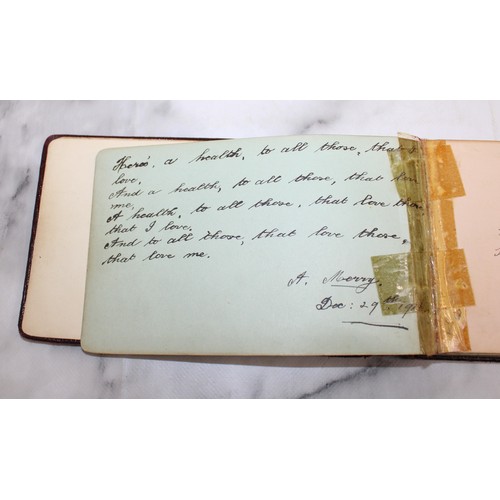 Here's, a health, to all those, that I
love.
And a health, to all those, that love
me.
A health, to all those, that love those,
that I love.
And to all those, that love those,
that love me.
A. Merry.
Dec: 29th